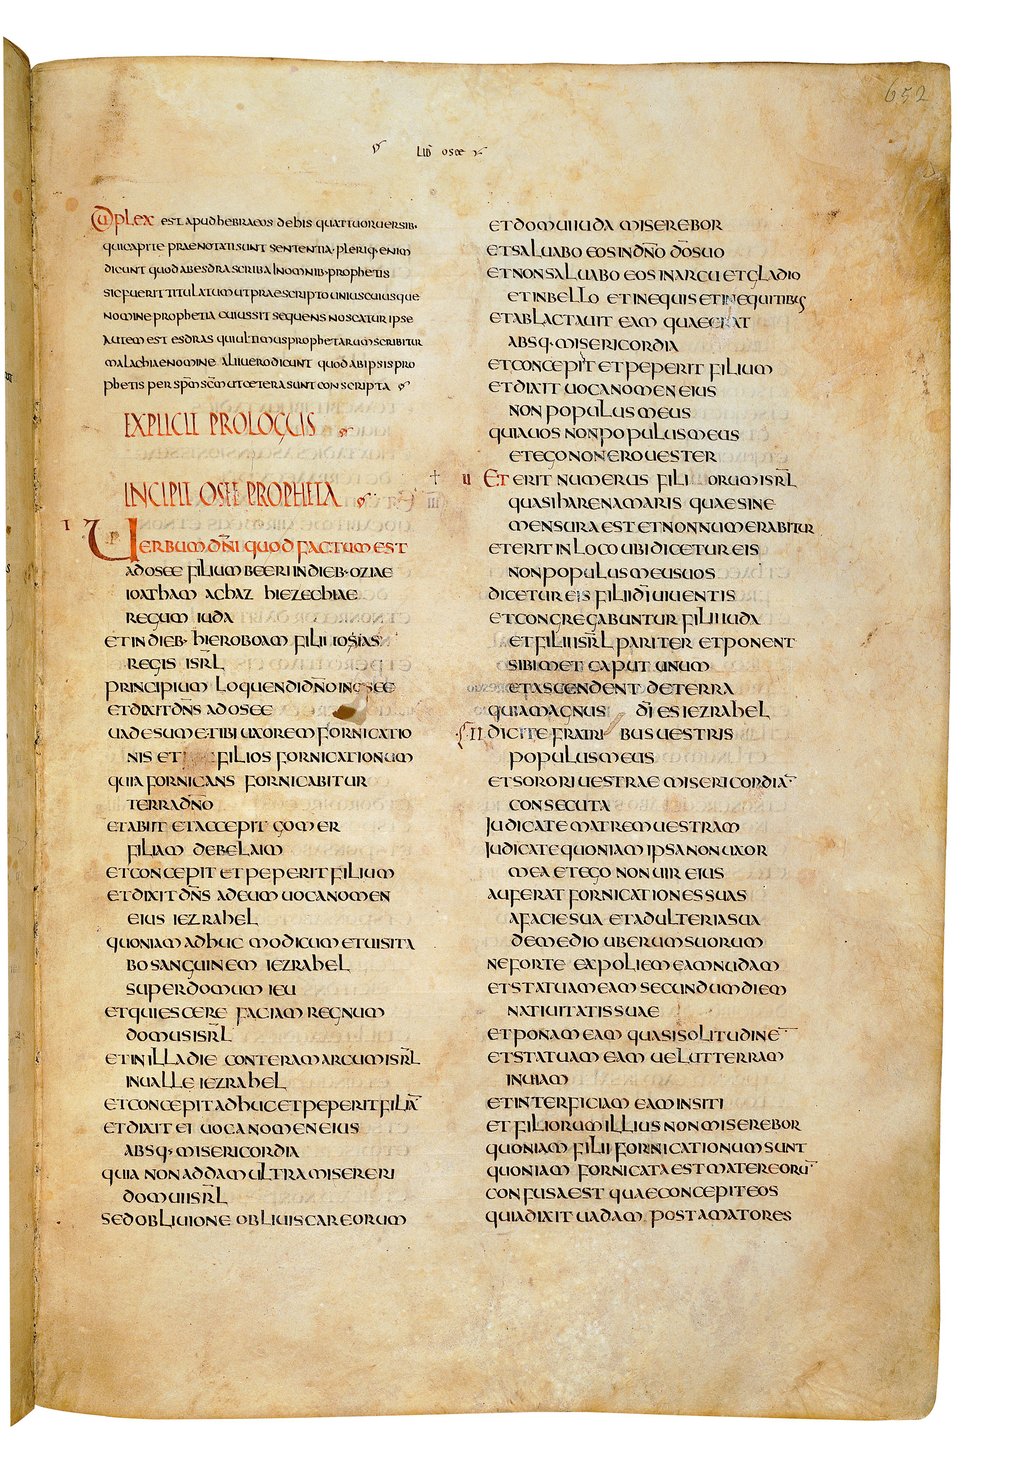 652
LIB̄ OSEE
DUPLEX EST APUD HEBRAEOS DE HIS QUATTUOR UERSIB·
QUI CAPITE PRAENOTATI SUNT SENTENTIA · PLERIQ· ENIM
DICUNT QUOD AB ESDRA SCRIBA IN OMNIB· PROPHETIS
SIC FUERIT TITULATUM UT PRAESCRIPTO UNIUSCUIUSQUE
NOMINE PROPHETIA CUIUS SIT SEQUENS NOSCATUR IPSE
AUTEM EST ESDRAS QUI ULTIMUS PROPHETARUM SCRIBITUR
MALACHIAE NOMINE ALII UERO DICUNT QUOD AB IPSIS PRO
PHETIS PER SPM̄ SC̄M UT CETERA SUNT CONSCRIPTA
EXPLICIT PROLOGUS
INCIPIT OSEE PROPHETA
I UERBUM DN̄I QUOD FACTUM EST
AD OSEE FILIUM BEERI IN DIEB· OZIAE
IOATHAM ACHAZ HIEZECHIAE
REGUM IUDA
ET IN DIEB· HIEROBOAM FILII IOSIAS
REGIS ISRL̄
PRINCIPIUM LOQUENDI DN̄O IN OSEE
ET DIXIT DN̄S AD OSEE
UADE SUME TIBI UXOREM FORNICATIO
NIS ET FILIOS FORNICATIONUM
QUIA FORNICANS FORNICABITUR
TERRA DN̄O
ET ABIIT ET ACCEPIT GOMER
FILIAM DEBELAIM
ET CONCEPIT ET PEPERIT FILIUM
ET DIXIT DN̄S AD EUM UOCA NOMEN
EIUS IEZRAHEL
QUONIAM ADHUC MODICUM ET UISITA
BO SANGUINEM IEZRAHEL
SUPER DOMUM IEU
ET QUIESCERE FACIAM REGNUM
DOMUS ISRL̄
ET IN ILLA DIE CONTERAM ARCUM ISRL̄
IN UALLE IEZRAHEL
ET CONCEPIT ADHUC ET PEPERIT FILIĀ
ET DIXIT EI UOCA NOMEN EIUS
ABSQ· MISERICORDIA
QUIA NON ADDAM ULTRA MISERERI
DOMUI ISRL̄
SED OBLIUIONE OBLIUISCAR EORUM
ET DOMUI IUDA MISEREBOR
ET SALUABO EOS IN DN̄O DO̅ SUO
ET NON SALUABO EOS IN ARCU ET GLADIO
ET IN BELLO ET IN EQUIS ET IN EQUITIBUS
ET ABLACTAUIT EAM QUAE ERAT
ABSQ· MISERICORDIA
ET CONCEPIT ET PEPERIT FILIUM
ET DIXIT UOCA NOMEN EIUS
NON POPULUS MEUS
QUIA UOS NON POPULUS MEUS
ET EGO NON ERO UESTER
II ET ERIT NUMERUS FILIORUM ISRL̄
QUASI HARENA MARIS QUAE SINE
MENSURA EST ET NON NUMERABITUR
ET ERIT IN LOCO UBI DICETUR EIS
NON POPULUS MEUS UOS
DICETUR EIS FILII DI̅ UIUENTIS
ET CONGREGABUNTUR FILII IUDA
ET FILII ISRL̄ PARITER ET PONENT
SIBIMET CAPUT UNUM
ET ASCENDENT DE TERRA
QUIA MAGNUS DI̅ES IEZRAHEL
DICITE FRATRIBUS UESTRIS
POPULUS MEUS
ET SORORI UESTRAE MISERICORDIĀ
CONSECUTA
IUDICATE MATREM UESTRAM
IUDICATE QUONIAM IPSA NON UXOR
MEA ET EGO NON UIR EIUS
AUFERAT FORNICATIONES SUAS
A FACIE SUA ET ADULTERIA SUA
DE MEDIO UBERUM SUORUM
NE FORTE EXPOLIEM EAM NUDAM
ET STATUAM EAM SECUNDUM DIEM
NATIUITATIS SUAE
ET PONAM EAM QUASI SOLITUDINĒ
ET STATUAM EAM UELUT TERRAM
INUIAM
ET INTERFICIAM EAM IN SITI
ET FILIORUM ILLIUS NON MISEREBOR
QUONIAM FILII FORNICATIONUM SUNT
QUONIAM FORNICATA EST MATER EORŪ
CONFUSA EST QUAE CONCEPIT EOS
QUIA DIXIT UADAM POST AMATORES